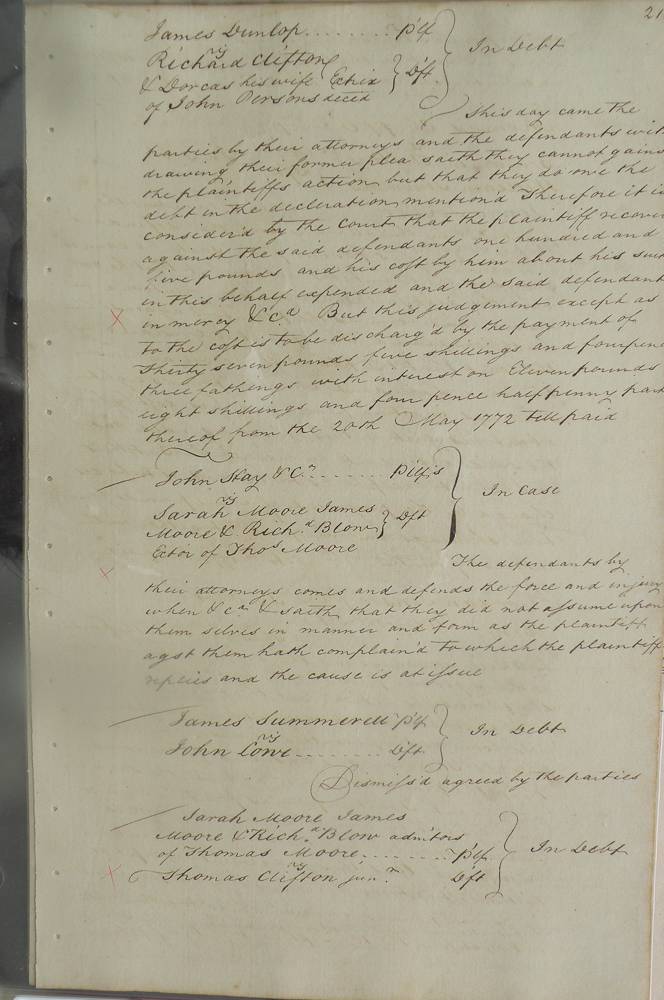 21
James Dunlop . . . . . . . . . Pltf
vs
Richard Clifton
& Dorcas his wife Extrix } Dft } In Debt
of John Persons deced
This day came the
parties by their attorneys and the defendants with
drawing their former plea saith they cannot gains
the plaintiffs action but that they do owe the
debt in the decleration mention'd Therefore it is
consider'd by the Court that the plaintiff recover
against the said defendants one hundred and
five pounds and his cost by him about his suit
in this behalf expended and the said defendant
in mercy &Ca But this judgement except as
to the cost is to be discharg'd by the payment of
Thirty seven pounds five shillings and fourpence
three fathings with interest on Eleven pounds
eight shillings and four pence half penny part
thereof from the 20th May 1772 till paid
John Hay & Co . . . . . . . Pltfs
vs
Sarah Moore James
Moore & Richd Blow } Dft } In Case
Exctor of Thos Moore
The defendants by
their attorneys comes and defends the force and injury
when &ca & saith that they did not assume upon
them selves in manner and form as the plaintiff
agst them hath complain'd to which the plaintiff
replies and the cause is at issue
James Summerell Pltf
vs } In Debt
John Lowe . . . . . . . . . Dft
Dismiss'd agreed by the parties
Sarah Moore James
Moore & Richd Blow admitors
of Thomas Moore . . . . . . . . Pltf } In Debt
vs
Thomas Clifton junr Dft